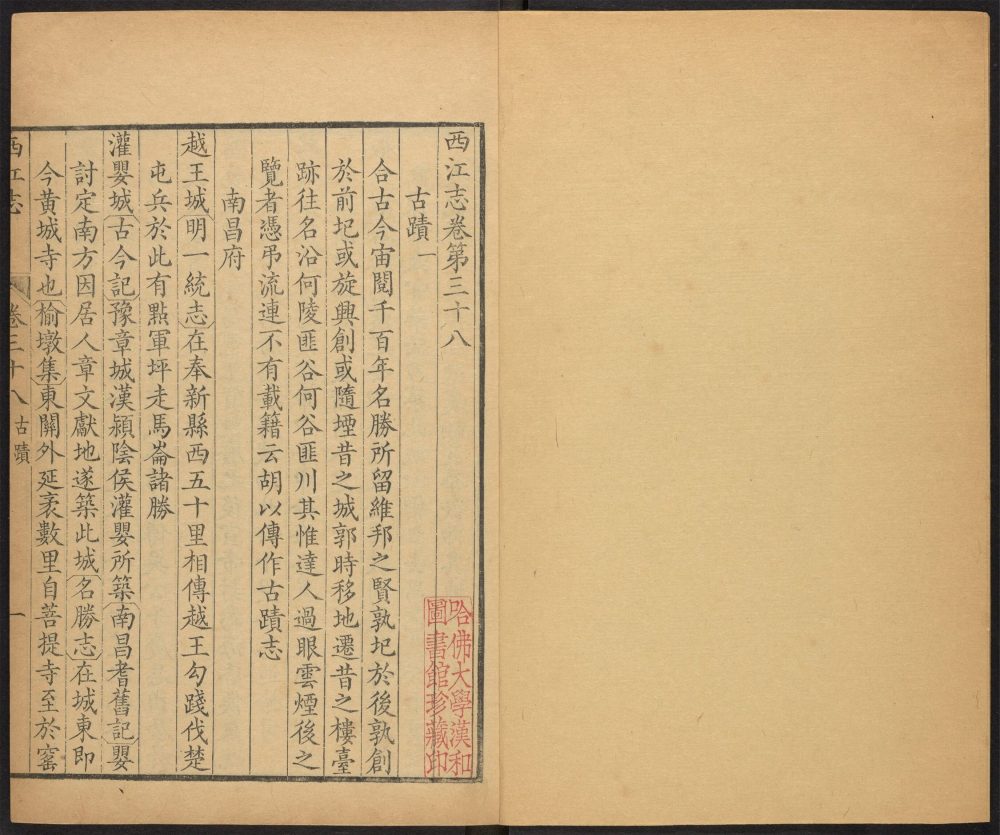 西江志卷第三十八
古蹟一
合古今宙閱千百年名勝所留維邦之賢孰圮於後孰創
於前圮或旋興創或隨堙昔之城郭時移地遷昔之樓臺
跡往名沿何陵匪谷何谷匪川其惟達人過眼雲煙後之
覽者憑弔流連不有載籍云胡以傳作古蹟志
南昌府
越王城明一統志在奉新縣西五十里相傳越王勾踐伐楚
屯兵於此有點軍坪走馬崙諸勝
灌嬰城古今記豫章城漢潁陰侯灌嬰所築南昌耆舊記嬰
討定南方因居人章文獻地遂築此城名勝志在城東即
今黃城寺也榆墩集東關外延袤數里自菩提寺至於窰
西江志
卷三十八
古蹟
一
哈佛大學漢和
圖書館珍藏印